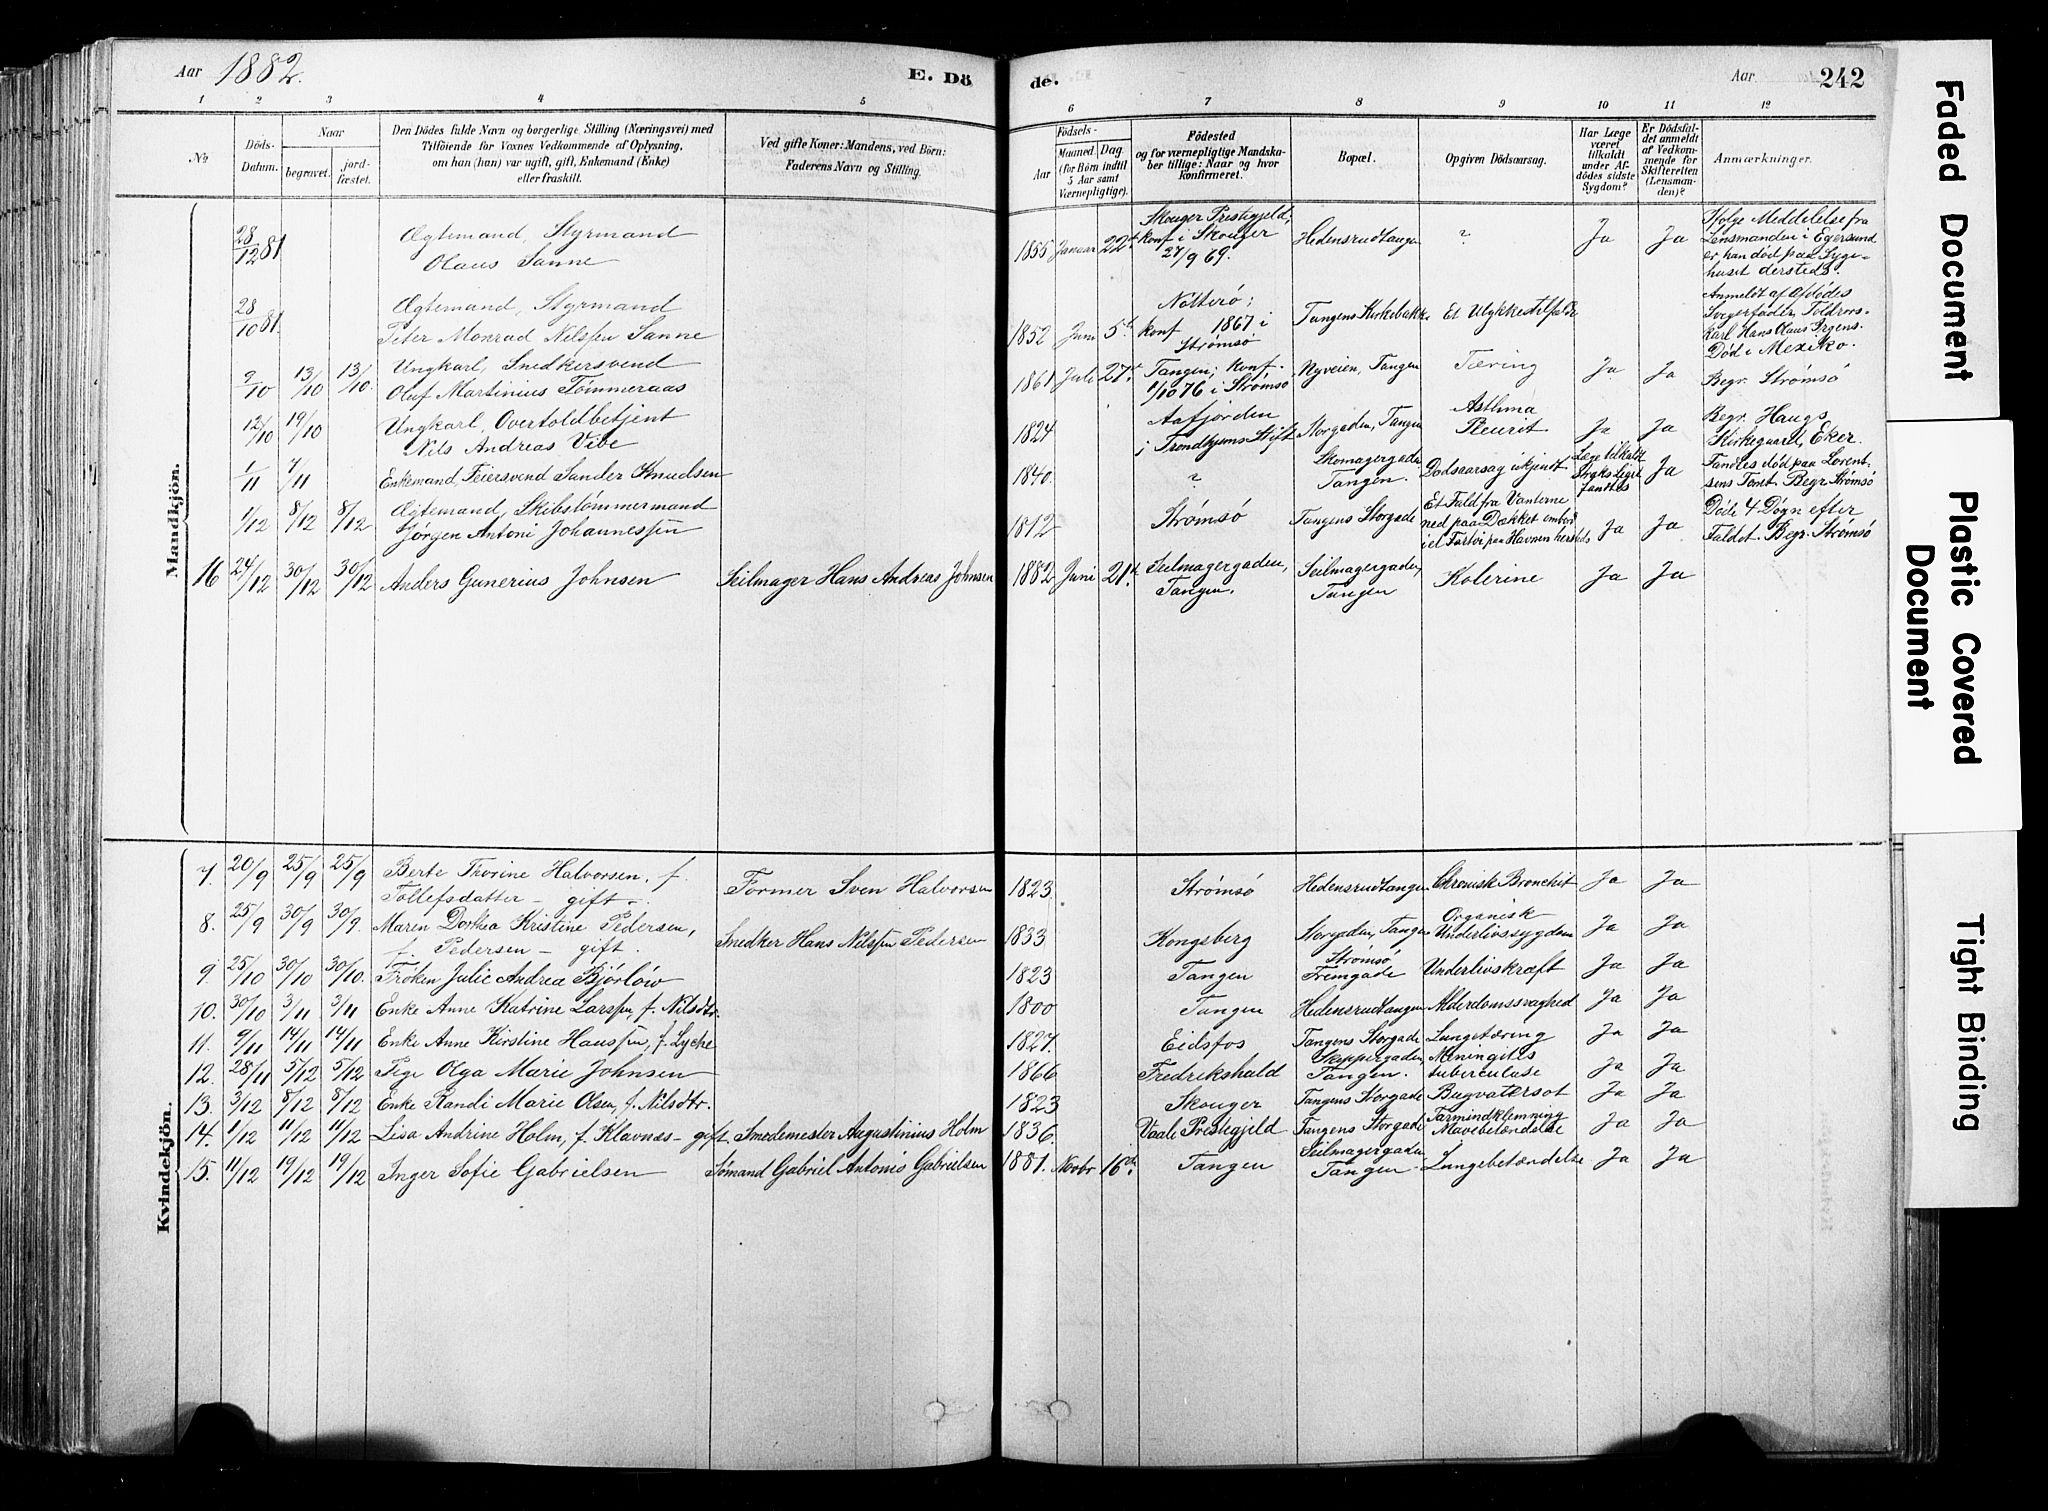 Aar 1882.
E. Dö
de.
Aar
242
1 2 3 4 5 6 7 8 9 10 11 12
No
Döds-
Datum.
Naar
begravet.
jord-
fæstet.
Den Dödes fulde Navn og borgerlige Stilling (Næringsvei) med
Tilföiende for Voxnes Vedkommende af Oplysning,
om han (hun) var ugift, gift, Enkemand (Enke)
eller fraskilt.
Ved gifte Koner: Mandens, ved Börn:
Faderens Navn og Stilling.
Födsels-
Aar
Maaned. Dag
(for Börn indtil
5 Aar samt
Værnepligtige).
Födested
og for værnepligtige Mandska-
ber tillige: Naar og hvor
konfirmeret.
Bopæl.
Opgiven Dödsaarsag.
Har Læge
været
tilkaldt
under Af-
dödes sidste
Sygdom?
Er Dödsfal-
det anmeldt
af Vedkom-
mende for
Skifteretten
(Lensman-
den)?
Anmærkninger.
Mandkjön.
28/12 81 Ægtemand, Styrmand
Olaus Sanne
1855 Januar 22de
Skouger Prestegjeld,
konf i Skouger
27/9 69.
Hedensrudtangen ? Ja Ja
Ifølge Meddelelse fra
Lensmanden i Egersund
er han død paa Syge-
huset dersteds.
28/10 81. Ægtemand, Styrmand
Peter Monrad Nilssen Sanne
1852 Juni 5te
Nøtterø;
konf 1867 i
Strømsø
Tangens Kirkebakke Et Ulykkestilfælde
Anmeldt af afdødes
Svigerfader, Toldroers-
karl Hans Olaus Irgens.
Død i Mexiko.
9/10 13/10 13/10. Ungkarl, Snedkersvend
Oluf Martinius Tømmeraas
1861 Juli 27de
Tangen; Konf.
1/10 76 i Strømsø
Nyveien, Tangen Tæring Ja Ja Begr. Strømsø
12/10 19/10 Ungkarl, Overtoldbetjent
Nils Andreas Vibe
1824
Aafjorden
i Trondhjems Stift
Storgaden, Tangen
Asthma
Pleurit
Ja Ja
Begr. Haugs
Kirkegaard, Eker.
1/11 7/11 Enkemand, Feiersvend Sander Knudsen
1840. ?
Skomagergaden
Tangen.
Dødsaarsag ukjendt
Læge tilkaldt
straks Liget
fandtes
Ja
Fandtes død paa Lorent-
sens Tomt. Begr Strømsø
1/12 8/12 8/12 Ægtemand, Skibstømmermand
Jørgen Antoni Johannessen
1812 Strømsø Tangens Storgade
Et Fald fra Vanterne
ned paa Dækket ombord
i et Fartøi paa Havnen hersteds
Ja Ja
Døde 4 Døgn efter
Faldet. Begr. Strømsø
16 24/12 30/12 30/12 Anders Gunerius Johnsen Seilmager Hans Andreas Johnsen
1882 Juni 21de
Seilmagergaden,
Tangen.
Seilmagergaden,
Tangen
Kolerine Ja Ja
Kvindekjön.
7. 20/9 25/9 25/9 Berte Thorine Halvorsen, f.
Tollefsdatter – gift –. Former Sven Halvorsen
1823 Strømsø Hedensrudtangen Chronisk Bronchit Ja Ja
8. 25/9 30/9 30/9. Maren Dorthea Kristine Pedersen,
f. Pedersen – gift. Snedker Hans Nilssen Pedersen
1833 Kongsberg Storgaden, Tangen
Organisk
Underlivssygdom Ja Ja
9. 25/10 30/10 30/10. Frøken Julie Andrea Bjørløw
1823 Tangen
Strømsø
Fremgade Underlivskræft Ja Ja
10. 30/10 3/11 3/11 Enke Anne Katrine Larssen, f. Nilsdtr.
1800 Tangen Hedensrudtangen Alderdomssvaghed Ja Ja
11. 9/11 14/11 14/11 Enke Anne Kirstine Hanssen, f. Lyche
1827. Eidsfos Tangens Storgade Lungetæring Ja Ja
12. 28/11 5/12 5/12 Pige Olga Marie Johnsen
1866 Fredrikshald
Skippergaden,
Tangen.
Meningitis
tuberculose Ja Ja
13. 3/12 8/12 8/12 Enke Randi Marie Olsen, f. Nilsdtr.
1823 Skouger Tangens Storgade Bugvatersot Ja Ja
14. 1/12 11/12 11/12 Lisa Andrine Holm, f. Klavnæs – gift, Smedemester Augustinius Holm
1836. Vaale Prestegjeld Tangens Storgade
Tarmindklemning
Mavebetændelse Ja Ja
15. 11/12 19/12 19/12 Inger Sofie Gabrielsen Sømand Gabriel Antonis Gabrielsen
1881. Novbr 16de. Tangen
Seilmagergaden
Tangen
Lungebetændelse Ja Ja
Faded Document
Plastic Covered
Document
Tight Binding